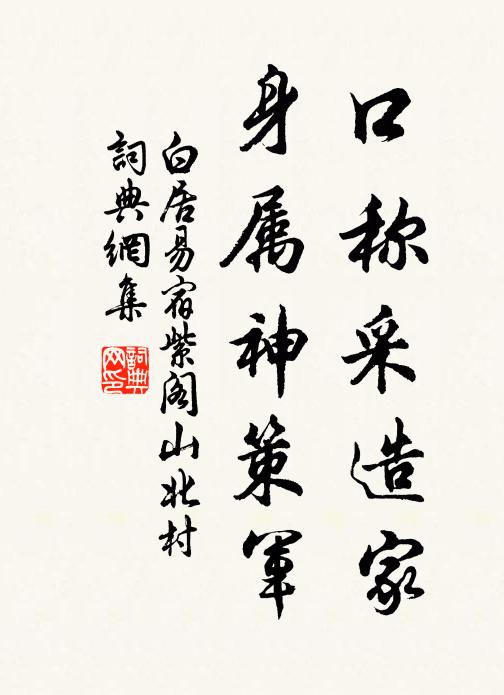 口称采造家
身属神策军
白居易宿紫阁山北村
詞典網集
詞典网印